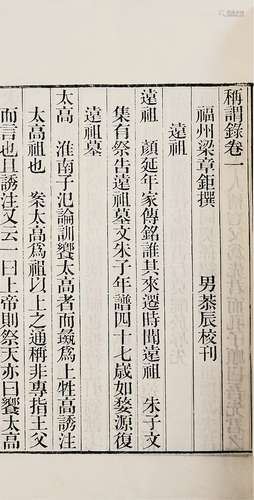 稱謂錄卷一
福州梁章鉅撰　男恭辰校刊
遠祖
遠祖　顏延年家傳銘誰其來遷時聞遠祖　朱子文
集有祭告遠祖墓文朱子年譜四十七歲如婺源復
遠祖墓
太高　淮南子氾論訓饗太高者而彘爲上牲高誘注
太高祖也　案太高爲祖以上之通稱非專指王父
而言也且誘注又云一曰上帝則祭天亦曰饗太高